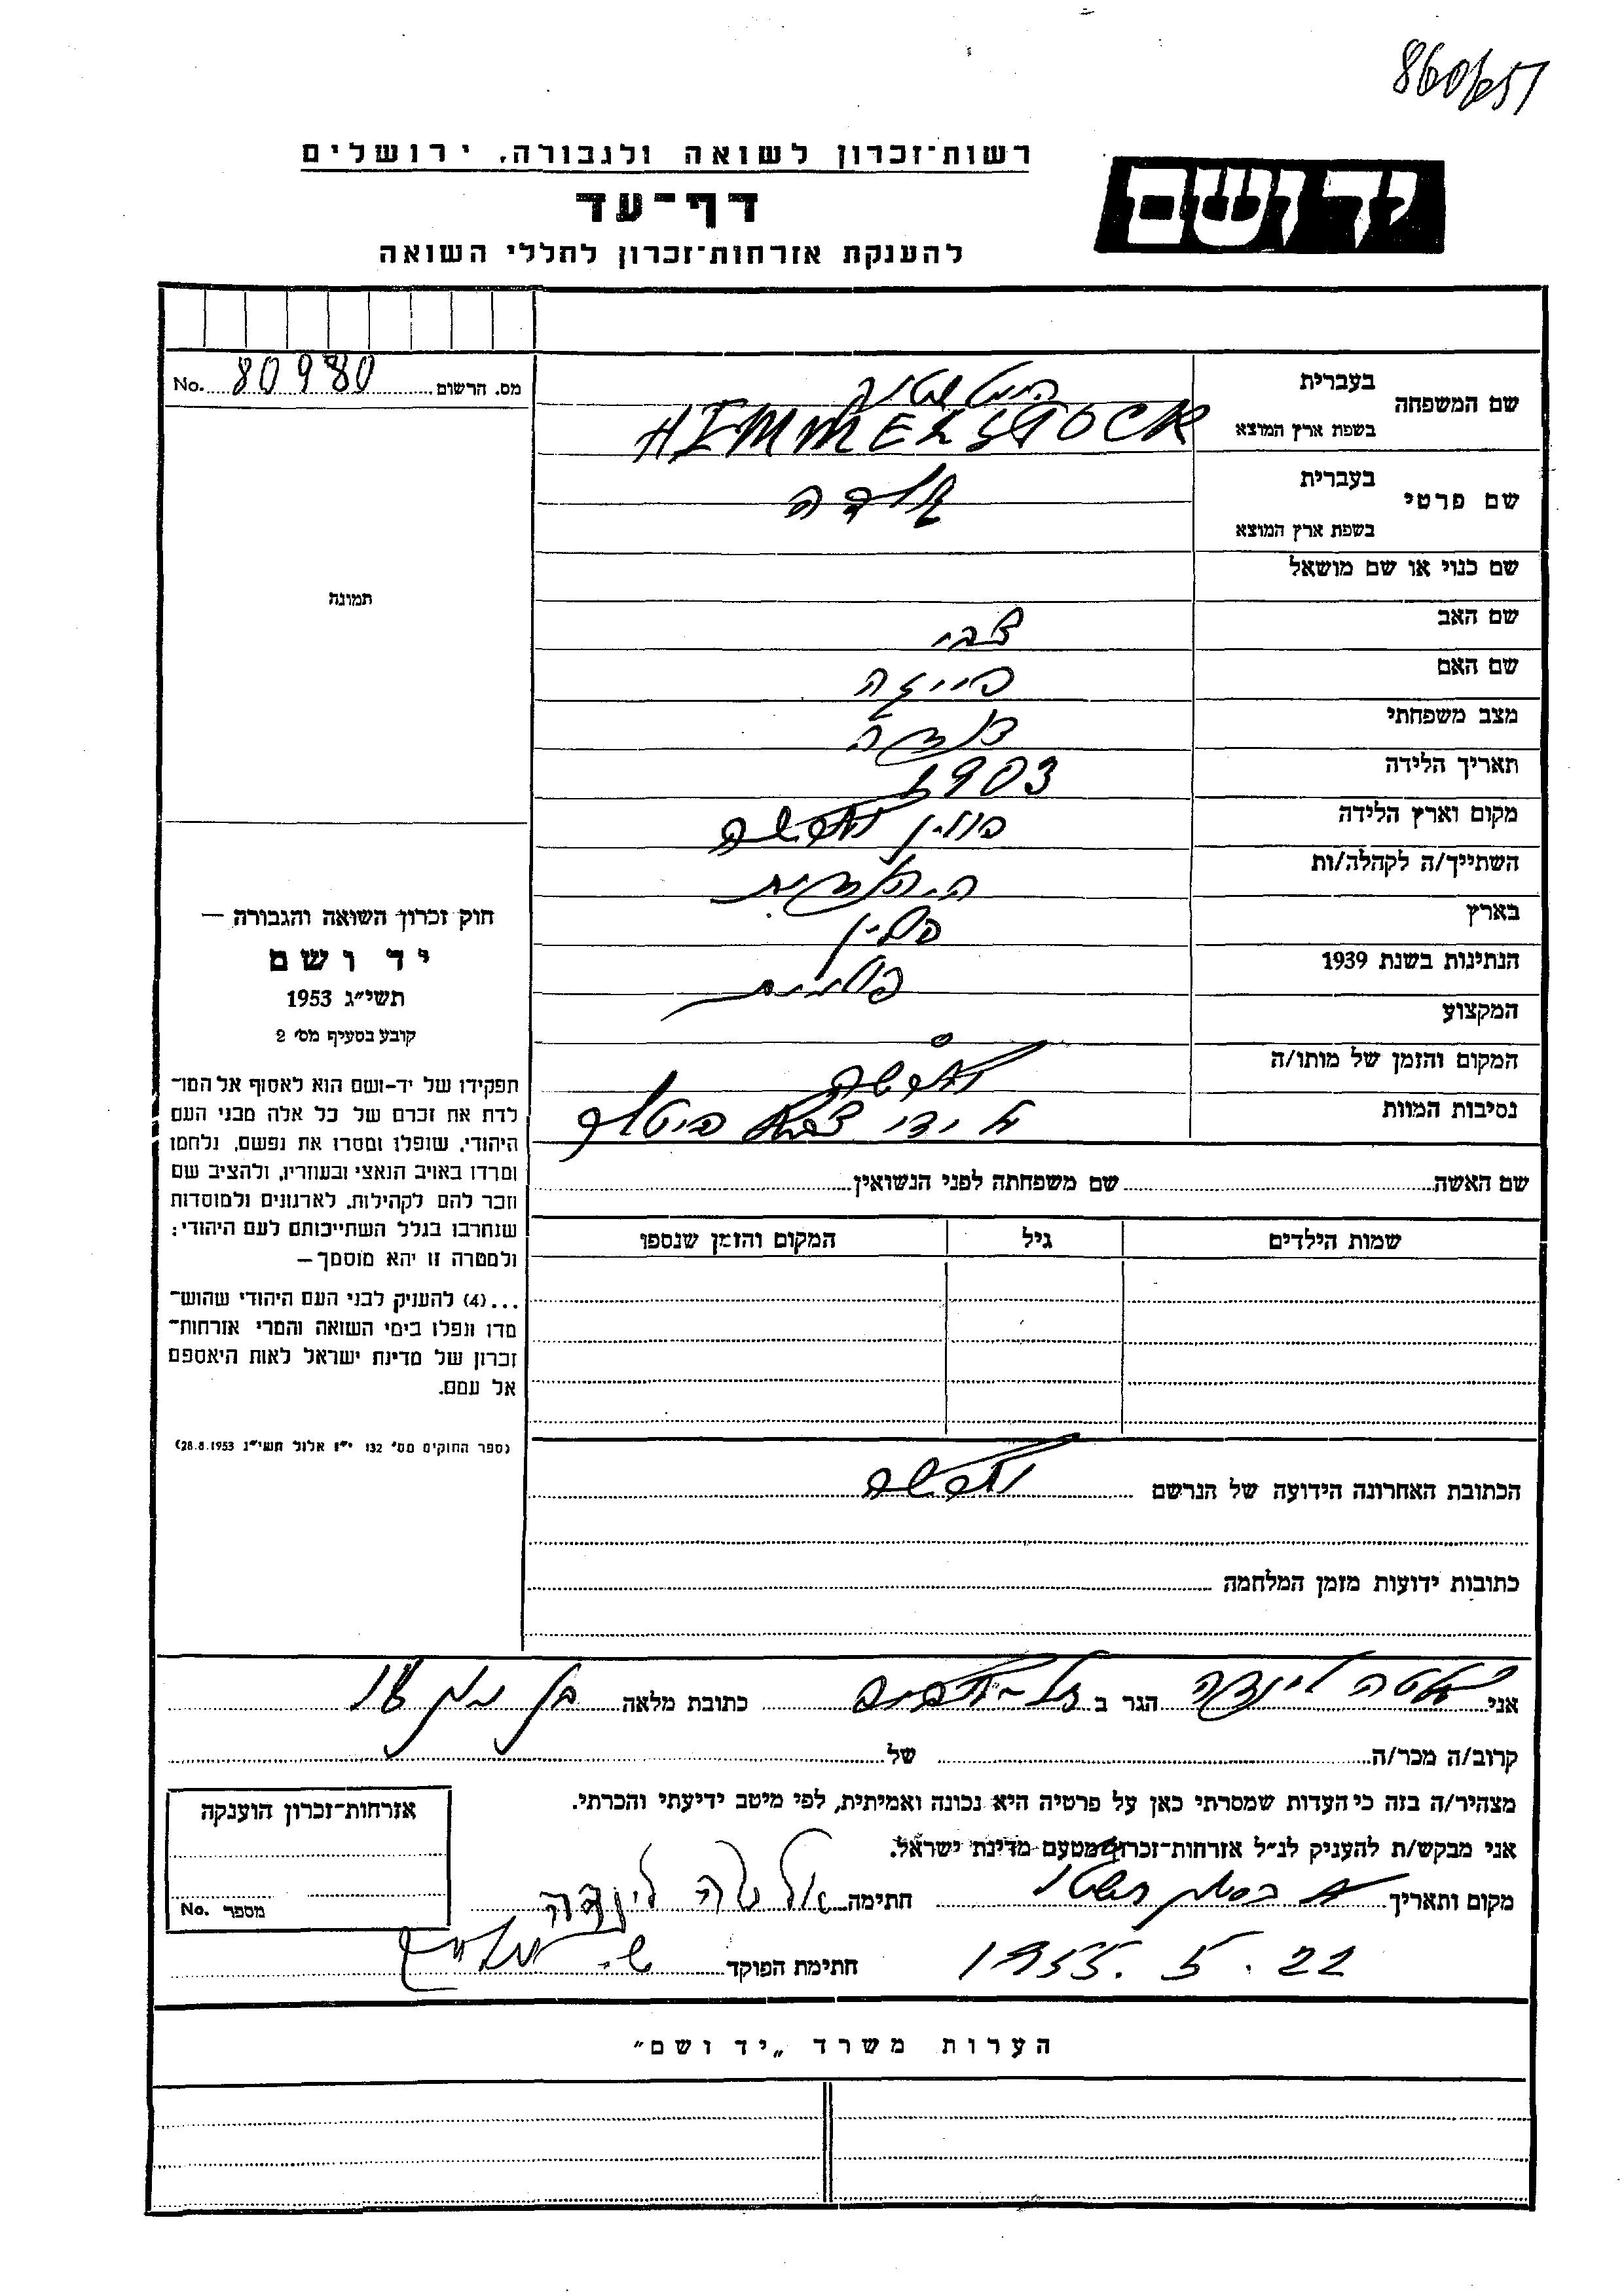 860651
רשות־זכרון לשואה ולגבורה, ירושלים
יד ושם
דף־עד
להענקת אזרחות־זכרון לחללי השואה
מס. הרשום 80980 No.
תמונה
שם המשפחה
בעברית
בשפת ארץ המוצא HIMMELSTOCK
שם פרטי
בעברית
בשפת ארץ המוצא
שם כנוי או שם מושאל
שם האב צבי
שם האם פייגה
מצב משפחתי
תאריך הלידה 1903
מקום וארץ הלידה פולין ווארשה
השתייך/ה לקהלה/ות היהודית
בארץ פולין
הנתינות בשנת 1939 פולנית
המקצוע
המקום והזמן של מותו/ה ווארשה
נסיבות המוות
שם האשה שם משפחתה לפני הנשואין
שמות הילדים גיל המקום והזמן שנספו
חוק זכרון השואה והגבורה —
יד ושם
תשי״ג 1953
קובע בסעיף מס׳ 2
תפקידו של יד-ושם הוא לאסוף אל המו־
לדת את זכרם של כל אלה מבני העם
היהודי, שנפלו ומסרו את נפשם, נלחמו
ומרדו באויב הנאצי ובעוזריו, ולהציב שם
וזכר להם לקהילות, לארגונים ולמוסדות
שנחרבו בגלל השתייכותם לעם היהודי;
ולמטרה זו יהא מוסמך—
...(4) להעניק לבני העם היהודי שהוש־
מדו ונפלו בימי השואה והמרי אזרחות־
זכרון של מדינת ישראל לאות היאספם
אל עמם.
(ספר החוקים מס׳ 132 י״ז אלול תשי״ג 28.8.1953)
הכתובת האחרונה הידועה של הנרשם ווארשה
כתובות ידועות מזמן המלחמה
אני לינדה הגר ב תל-אביב כתובת מלאה
קרוב/ה מכר/ה של
מצהיר/ה בזה כי העדות שמסרתי כאן על פרטיה היא נכונה ואמיתית, לפי מיטב ידיעתי והכרתי.
אני מבקש/ת להעניק לנ״ל אזרחות־זכרון מטעם מדינת ישראל.
מקום ותאריך חתימה לינדה
22.5.1955 חתימת הפוקד
אזרחות־זכרון הוענקה
מספר No.
הערות משרד „יד ושם״